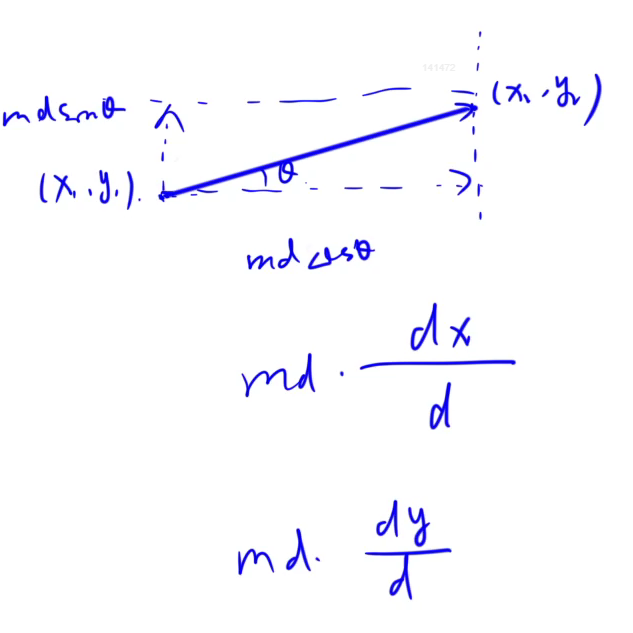 141472
md sinθ
(x₁, y₁)
(x₂, y₂)
θ
md cosθ
md · dx/d
md · dy/d